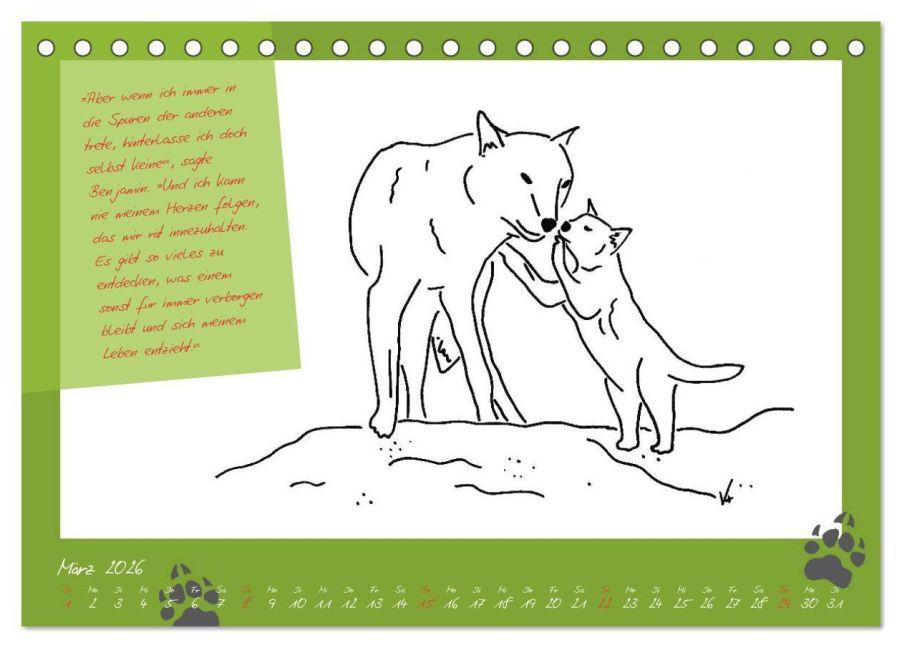 »Aber wenn ich immer in
die Spuren der anderen
trete, hinterlasse ich doch
selbst keine«, sagte
Benjamin. »Und ich kann
nie meinem Herzen folgen,
das mir rät innezuhalten.
Es gibt so vieles zu
entdecken, was einem
sonst für immer verborgen
bleibt und sich meinem
Leben entzieht.«
März 2026
So Mo Di Mi Do Fr Sa So Mo Di Mi Do Fr Sa So Mo Di Mi Do Fr Sa So Mo Di Mi Do Fr Sa So Mo Di
1 2 3 4 5 6 7 8 9 10 11 12 13 14 15 16 17 18 19 20 21 22 23 24 25 26 27 28 29 30 31